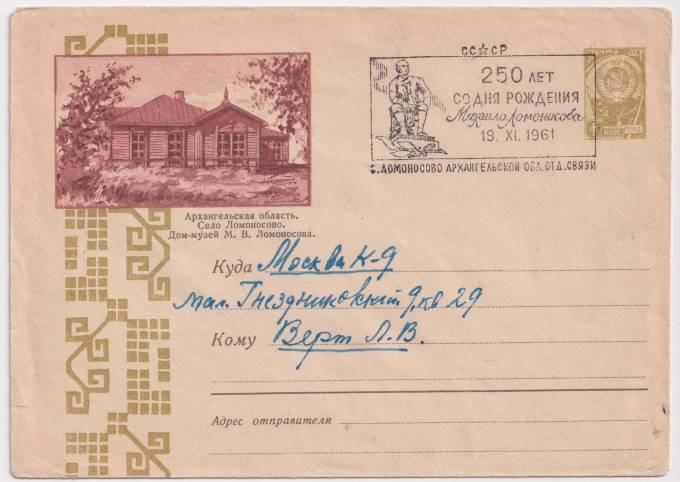 СССР
250 ЛЕТ
СО ДНЯ РОЖДЕНИЯ
Михаила Ломоносова
19. XI. 1961
С. ЛОМОНОСОВО АРХАНГЕЛЬСКОЙ ОБЛ. ОТД. СВЯЗИ
Архангельская область.
Село Ломоносово.
Дом-музей М. В. Ломоносова.
Куда Москва К-9
мал. Гнездниковский 9, кв 29
Кому Верт Л. В.
Адрес отправителя